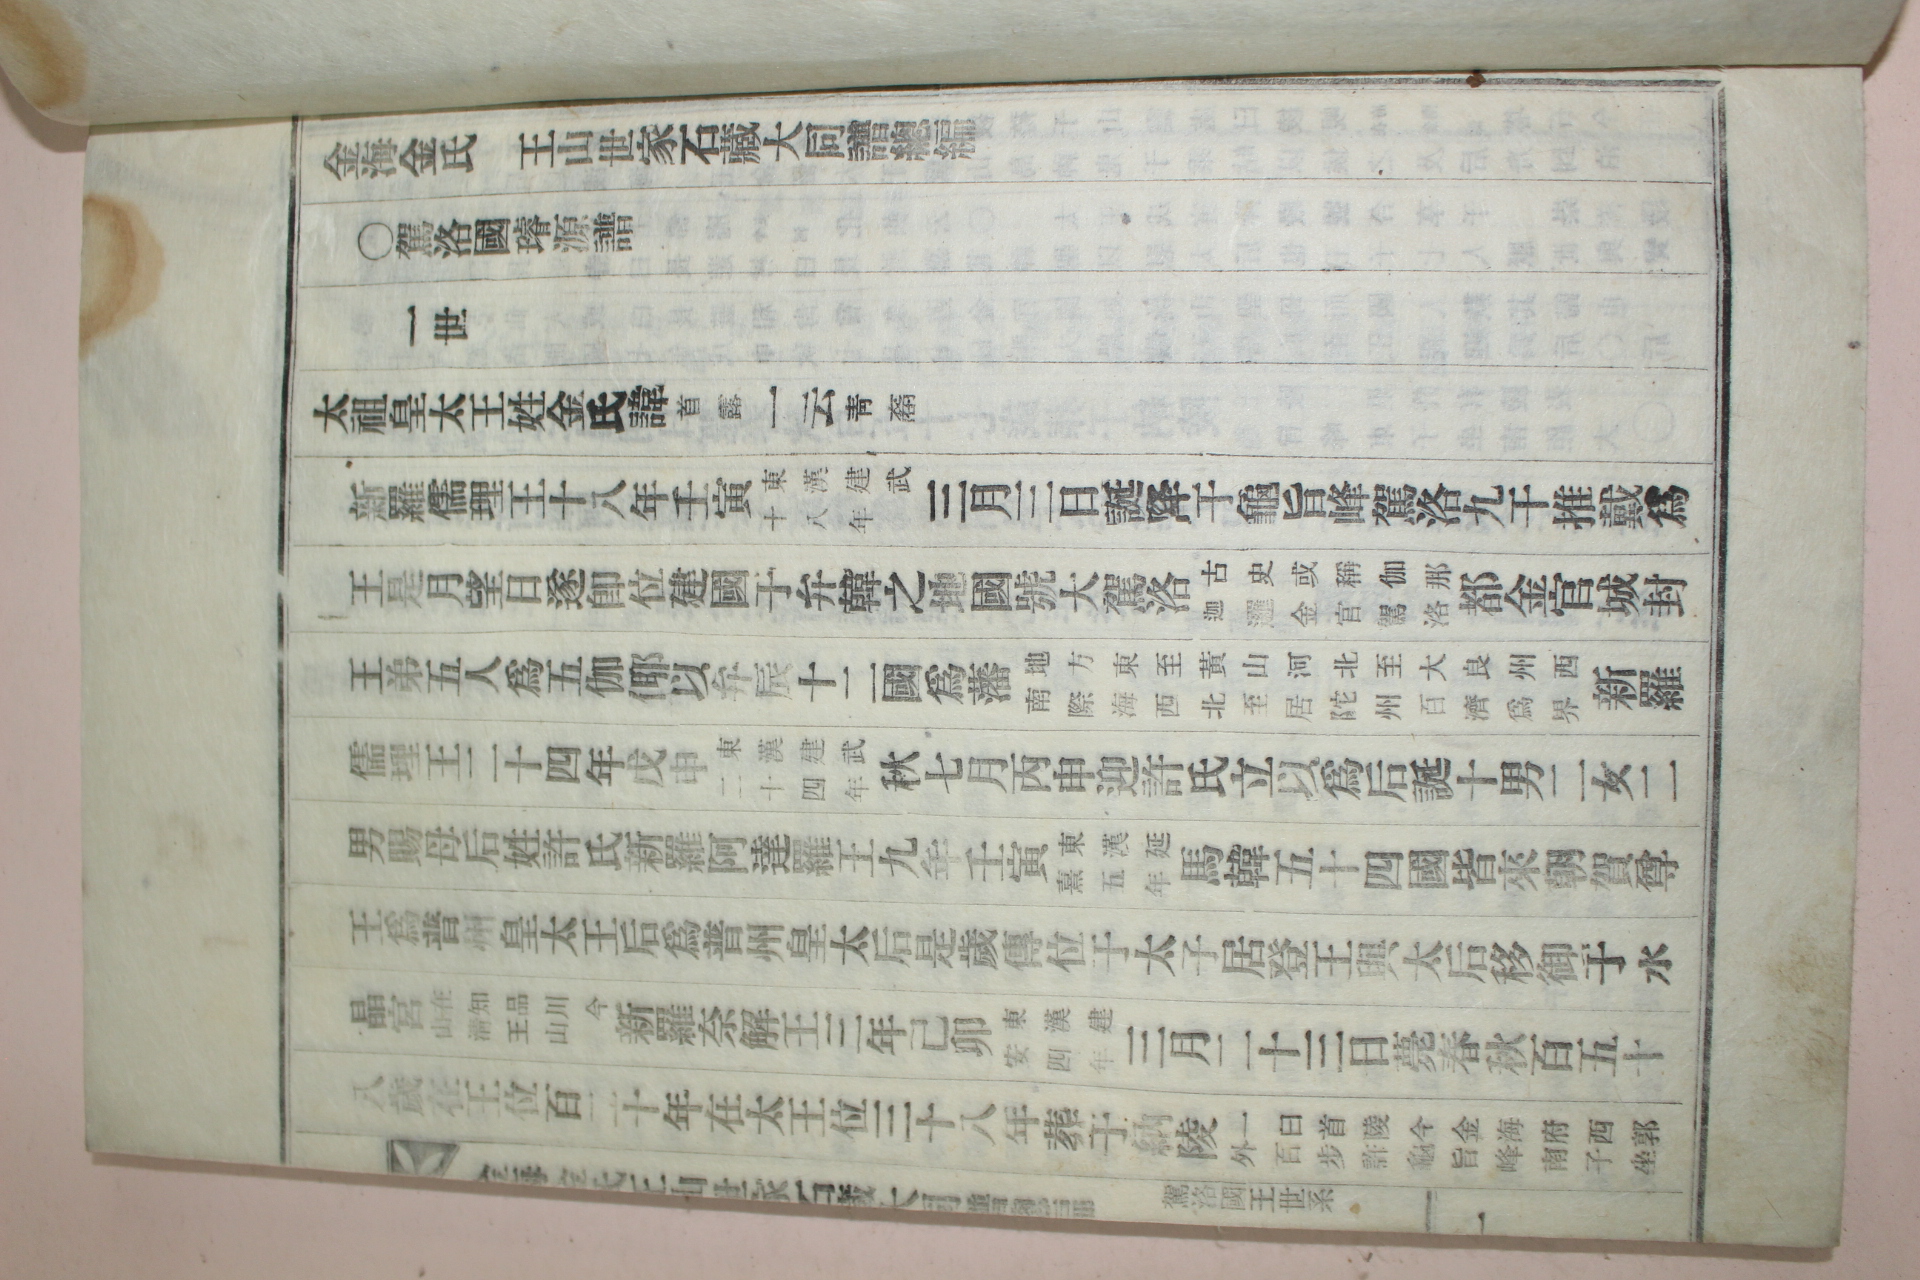 金海金氏 王山世家石藏大同譜總編
○駕洛國璿源譜
一世
太祖皇太王姓金氏諱首露一云靑裔
新羅儒理王十八年壬寅東漢建武十八年三月三日誕降于龜旨峰駕洛九干推戴爲
王是月望日遂卽位建國于弁韓之地國號大駕洛古史或稱伽那迦邏金官駕洛都金官城封
王弟五人爲五伽倻以弁辰十二國爲藩地方東至黃山河北至大良州西南際海西北至居陀州百濟爲界新羅
儒理王二十四年戊申東漢建武二十四年秋七月丙申迎許氏立以爲后誕十男二女二
男賜母后姓許氏新羅阿達羅王九年壬寅東漢延熹五年馬韓五十四國皆來朝賀尊
王爲普州皇太王后爲普州皇太后是歲傳位于太子居登王與太后移御于水
晶宮在知品川今山淸王山新羅奈解王三年己卯東漢建安四年三月二十三日薨春秋百五十
八歲在王位百二十年在太王位三十八年葬于納陵一曰首陵今金海府西郭外百步許龜旨峰南子坐
金海金氏王山世家石藏大同譜總編 駕洛國王世系 一